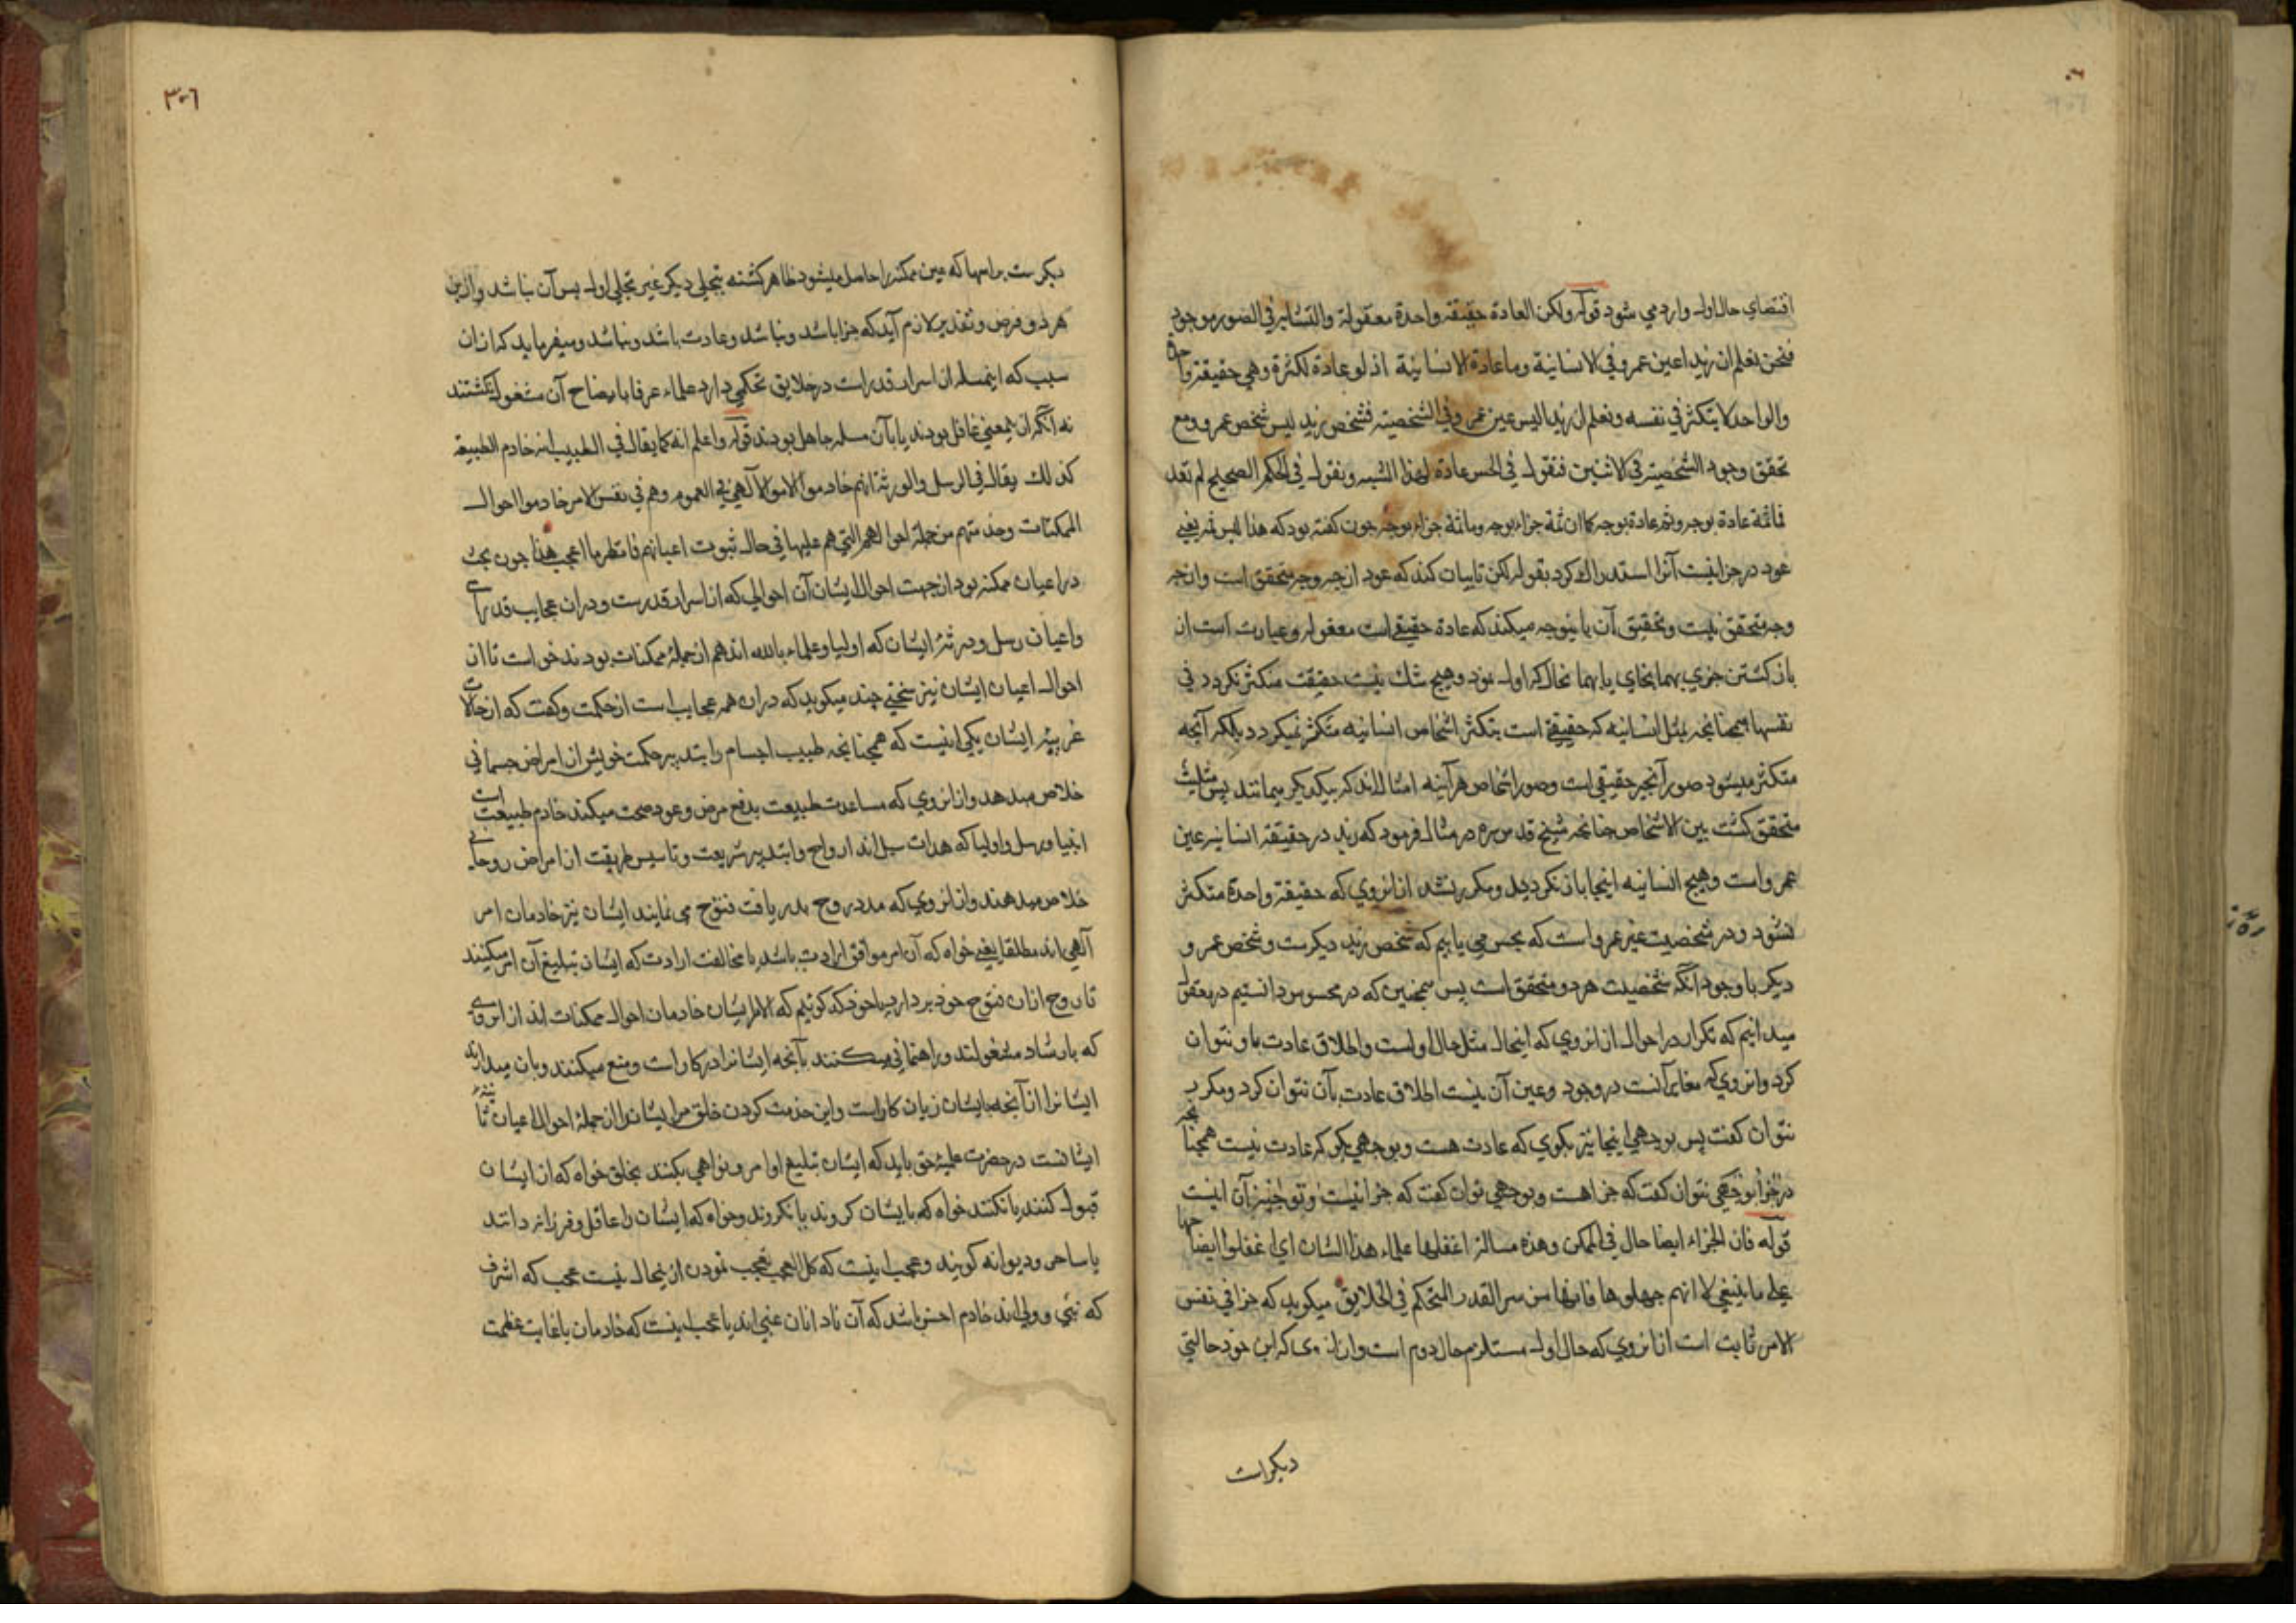 اقتضای حال اول وارد می شود قوله ولکن العادة حقیقة واحدة معقولة والتشابه فی الصور موجود
فنحن نعلم ان زیدا عین عمرو فی الانسانیة وما عادة الانسانیة اذ لو عادة لکثرة وهی حقیقة واحدة
والواحد لا یتکثر فی نفسه ونعلم ان زیدا لیس عین عمرو فی الشخصیة فشخص زید لیس شخص عمرو ومع
تحقق وجود الشخصیة فی الاثنین فنقول فی الحس عادة لهذا الشبه ونقول فی الحکم الصحیح لم تعد
فماثمة عادة بوجه وثم عادة بوجه کما ان ثمة جزاء بوجه وماثمة جزاء بوجه جون کفته بود که هذا لیس ثم یعنی
عود در جزا نیست آنرا استدراک کرد بقوله لکن تا بیان کند که عود از جه وجه متحقق است واز جه
وجه متحقق نیست وتحقیق آن باینوجه میکند که عادة حقیقی است معقول وعبارت است از
باز کشتن جزی بهمانجای یا بهمانحال که اول بود وهیج شک نیست حقیقت متکثر نکردد فی
نفسها همجنانجه بمثل انسانیه که حقیقتی است بتکثر اشخاص انسانیه متکثر نمیکردد بلکه آنجه
متکثر میشود صور آنجیز حقیقی است وصور اشخاص هر آینه امثال اند که بیکدیکر میمانند پس مثلیت
متحقق کشت بین الاشخاص جنانجه شیخ قدس سره در مثال فرمود که زید در حقیقة انسانیه عین
عمرو است وهیج انسانیه اینجا باز نکردید ومکرر نشد از انروی که حقیقة واحدة متکثر
نشود ودر شخصیت غیر عمرو است که بحس می یابیم که شخص زید دیکرست وشخص عمرو
دیکر با وجود آنکه شخصیت هر دو متحقق است پس همجنین که در محسوس دانستیم در معقول
میدانیم که تکرار در احوال از انروی که اینحال مثل حال اولست واطلاق عادت باو نتوان
کرد وانروی که مغایر آنست در وجود وعین آن نیست اطلاق عادت بآن نتوان کرد ومکرر
نتوان کفت پس بوجهی اینجا نیز بکوی که عادت هست وبوجهی بکو که عادت نیست همجنانجه
در جزا بوجهی نتوان کفت که جزا هست وبوجهی توان کفت که جزا نیست وتوجیه آن اینست
قوله فان الجزاء ایضا حال فی الممکن وهذه مسالة اغفلها علماء هذا الشان ای اغفلوا ایضاحها
علی ما ینبغی لا انهم جهلوها فانها من سر القدر المتحکم فی الخلایق میکوید که جزا فی نفس
الامر ثابت است از انروی که حال اول مستلزم حال دوم است واز انروی که این خود حالتی
دیکر است
٣٠٦
دیکرست براسها که عین ممکنه را حاصل میشود ظاهر کشته بتجلی دیکر غیر تجلی اول پس آن نباشد وازین
هر دو فرض وتقدیر لازم آید که جزا باشد ونباشد وعادت باشد ونباشد ومیفرماید که از ان
سبب که اینمسله از اسرار قدر است در خلایق تحکمی دارد علماء عرفا بایضاح آن مشغول نکشتند
نه آنکه از معنی غافل بودند یا بآن مسله جاهل بودند قوله واعلم انه کما یقال فی الطبیب انه خادم الطبیعة
کذلک یقال فی الرسل والورثة انهم خادموا الامر الآلهی فی العموم وهم فی نفس الامر خادموا احوال
الممکنات وخدمتهم من جملة احوالهم التی هم علیها فی حال ثبوت اعیانهم فانظر ما اعجب هذا جون بحث
در اعیان ممکنه بود از جهت احوال ایشان آن احوالی که از اسرار قدرست ودران عجایب قدرای
واعیان رسل وورثه ایشان که اولیا وعلماء بالله اند هم از جمله ممکنات بودند خواست تا از
احوال اعیان ایشان نیز سخنی جند میکوید که دران همه عجایب است از حکمت وکفت که از حالات
غریبه ایشان یکی اینست که همجنانجه طبیب اجسام را بتدبیر حکمت خویش از امراض جسمانی
خلاص میدهد واز انروی که مساعدت طبیعت بدفع مرض وعود صحت میکند خادم طبیعت است
انبیا ورسل واولیا که هدات سبل اند ارواح را بتدبیر شریعت وتاسیس طریقت از امراض روحانی
خلاص میدهند واز انروی که مدد روح بدریافت فتوح می نمایند ایشان نیز خادمان امر
آلهی اند مطلقا یعنی خواه که آن امر موافق ارادت باشد یا مخالفت ارادت که ایشان تبلیغ آن امر میکنند
تا روح ازان فتوح خود بردارد یا خود که کوئیم که الامر ایشان خادمان احوال ممکنات اند از انروی
که بارشاد مشغولند وراهنمائی میکنند بآنجه ایشانرا در کار است ومنع میکنند وباز میدارند
ایشانرا از آنجه بایشان زیان کارست واین خدمت کردن خلق مر ایشانرا از جمله احوال اعیان ثابته
ایشانست در حضرت علمیه حق باید که ایشان تبلیغ اوامر ونواهی بکنند بخلق خواه که از ایشان
قبول کنند یا نکنند خواه که بایشان کروند یا نکروند وخواه که ایشان را عاقل وفرزانه دانند
یا ساحر ودیوانه کویند وعجب اینست که کل العجب تعجب نمودن ازینحال نیست عجب که اشرف
که نبی وولی اند خادم اخس باشد که آن نادانان غبی اند یا عجب اینست که خادمان با غایت عظمت